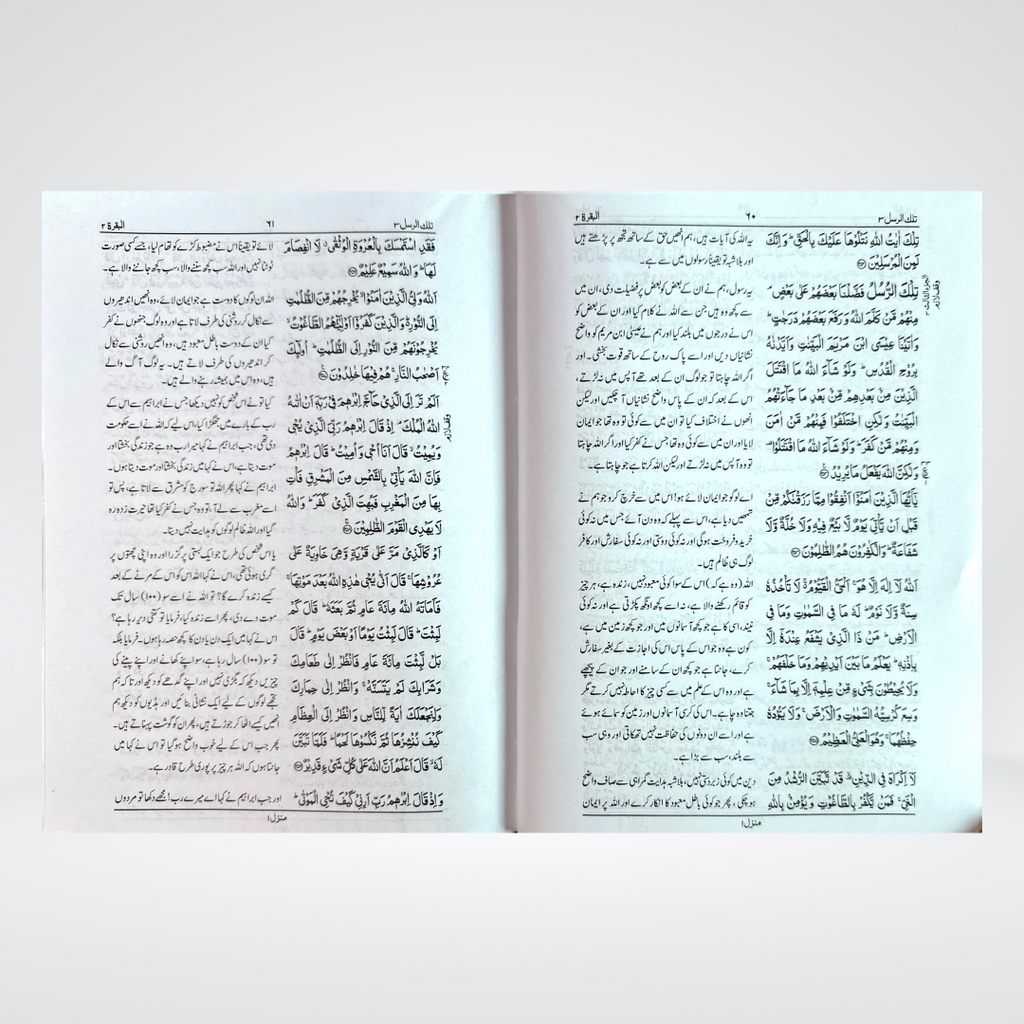 تلك الرسل ٣
٦٠
البقرة ٢
تِلْكَ اٰيٰتُ اللّٰهِ نَتْلُوْهَا عَلَيْكَ بِالْحَقِّ ؕ وَاِنَّكَ
لَمِنَ الْمُرْسَلِيْنَ ﴿٢٥٢﴾
تِلْكَ الرُّسُلُ فَضَّلْنَا بَعْضَهُمْ عَلٰى بَعْضٍ ۘ
مِنْهُمْ مَّنْ كَلَّمَ اللّٰهُ وَرَفَعَ بَعْضَهُمْ دَرَجٰتٍ ؕ
وَاٰتَيْنَا عِيْسَى ابْنَ مَرْيَمَ الْبَيِّنٰتِ وَاَيَّدْنٰهُ
بِرُوْحِ الْقُدُسِ ؕ وَلَوْ شَآءَ اللّٰهُ مَا اقْتَتَلَ
الَّذِيْنَ مِنْۢ بَعْدِهِمْ مِّنْۢ بَعْدِ مَا جَآءَتْهُمُ
الْبَيِّنٰتُ وَلٰكِنِ اخْتَلَفُوْا فَمِنْهُمْ مَّنْ اٰمَنَ
وَمِنْهُمْ مَّنْ كَفَرَ ؕ وَلَوْ شَآءَ اللّٰهُ مَا اقْتَتَلُوْا ۫
وَلٰكِنَّ اللّٰهَ يَفْعَلُ مَا يُرِيْدُ ﴿٢٥٣﴾
يٰٓاَيُّهَا الَّذِيْنَ اٰمَنُوْٓا اَنْفِقُوْا مِمَّا رَزَقْنٰكُمْ مِّنْ
قَبْلِ اَنْ يَّاْتِيَ يَوْمٌ لَّا بَيْعٌ فِيْهِ وَلَا خُلَّةٌ وَّلَا
شَفَاعَةٌ ؕ وَالْكٰفِرُوْنَ هُمُ الظّٰلِمُوْنَ ﴿٢٥٤﴾
اَللّٰهُ لَآ اِلٰهَ اِلَّا هُوَ ۚ اَلْحَيُّ الْقَيُّوْمُ ۚ لَا تَاْخُذُهٗ
سِنَةٌ وَّلَا نَوْمٌ ؕ لَهٗ مَا فِي السَّمٰوٰتِ وَمَا فِي
الْاَرْضِ ؕ مَنْ ذَا الَّذِيْ يَشْفَعُ عِنْدَهٗٓ اِلَّا
بِاِذْنِهٖ ؕ يَعْلَمُ مَا بَيْنَ اَيْدِيْهِمْ وَمَا خَلْفَهُمْ ۚ
وَلَا يُحِيْطُوْنَ بِشَيْءٍ مِّنْ عِلْمِهٖٓ اِلَّا بِمَا شَآءَ ۚ
وَسِعَ كُرْسِيُّهُ السَّمٰوٰتِ وَالْاَرْضَ ۚ وَلَا يَئُوْدُهٗ
حِفْظُهُمَا ۚ وَهُوَ الْعَلِيُّ الْعَظِيْمُ ﴿٢٥٥﴾
لَآ اِكْرَاهَ فِي الدِّيْنِ ۙ قَدْ تَّبَيَّنَ الرُّشْدُ مِنَ
الْغَيِّ ۚ فَمَنْ يَّكْفُرْ بِالطَّاغُوْتِ وَيُؤْمِنْۢ بِاللّٰهِ
یہ اللہ کی آیات ہیں، ہم انھیں حق کے ساتھ تجھ پر پڑھتے ہیں
اور بلاشبہ تو یقیناً رسولوں میں سے ہے۔
یہ رسول، ہم نے ان کے بعض کو بعض پر فضیلت دی، ان میں
سے کچھ وہ ہیں جن سے اللہ نے کلام کیا اور ان کے بعض کو
اس نے درجوں میں بلند کیا اور ہم نے عیسیٰ ابن مریم کو واضح
نشانیاں دیں اور اسے پاک روح کے ساتھ قوت بخشی۔ اور
اگر اللہ چاہتا تو جو لوگ ان کے بعد تھے آپس میں نہ لڑتے،
اس کے بعد کہ ان کے پاس واضح نشانیاں آ چکیں اور لیکن
انھوں نے اختلاف کیا تو ان میں سے کوئی تو وہ تھا جو ایمان
لایا اور ان میں سے کوئی وہ تھا جس نے کفر کیا اور اگر اللہ چاہتا
تو وہ آپس میں نہ لڑتے اور لیکن اللہ کرتا ہے جو چاہتا ہے۔
اے لوگو جو ایمان لائے ہو! اس میں سے خرچ کرو جو ہم نے
تمھیں دیا ہے، اس سے پہلے کہ وہ دن آئے جس میں نہ کوئی
خرید و فروخت ہوگی اور نہ کوئی دوستی اور نہ کوئی سفارش اور کافر
لوگ ہی ظالم ہیں۔
اللہ (وہ ہے کہ) اس کے سوا کوئی معبود نہیں، زندہ ہے، ہر چیز
کو قائم رکھنے والا ہے، نہ اسے کچھ اونگھ پکڑتی ہے اور نہ کوئی
نیند، اسی کا ہے جو کچھ آسمانوں میں اور جو کچھ زمین میں ہے،
کون ہے وہ جو اس کے پاس اس کی اجازت کے بغیر سفارش
کرے، جانتا ہے جو کچھ ان کے سامنے اور جو ان کے پیچھے
ہے اور وہ اس کے علم میں سے کسی چیز کا احاطہ نہیں کرتے مگر
جتنا وہ چاہے۔ اس کی کرسی آسمانوں اور زمین کو سمائے ہوئے
ہے اور اسے ان دونوں کی حفاظت نہیں تھکاتی اور وہی سب
سے بلند، سب سے بڑا ہے۔
دین میں کوئی زبردستی نہیں، بلاشبہ ہدایت گمراہی سے صاف واضح
ہو چکی، پھر جو کوئی باطل معبود کا انکار کرے اور اللہ پر ایمان
منزل ١
تلك الرسل ٣
٦١
البقرة ٢
فَقَدِ اسْتَمْسَكَ بِالْعُرْوَةِ الْوُثْقٰى ۗ لَا انْفِصَامَ
لَهَا ؕ وَاللّٰهُ سَمِيْعٌ عَلِيْمٌ ﴿٢٥٦﴾
اَللّٰهُ وَلِيُّ الَّذِيْنَ اٰمَنُوْا ۙ يُخْرِجُهُمْ مِّنَ الظُّلُمٰتِ
اِلَى النُّوْرِ ؕ وَالَّذِيْنَ كَفَرُوْٓا اَوْلِيٰٓـُٔهُمُ الطَّاغُوْتُ ۙ
يُخْرِجُوْنَهُمْ مِّنَ النُّوْرِ اِلَى الظُّلُمٰتِ ؕ اُولٰٓئِكَ
اَصْحٰبُ النَّارِ ۚ هُمْ فِيْهَا خٰلِدُوْنَ ﴿٢٥٧﴾
اَلَمْ تَرَ اِلَى الَّذِيْ حَآجَّ اِبْرٰهٖمَ فِيْ رَبِّهٖٓ اَنْ اٰتٰىهُ
اللّٰهُ الْمُلْكَ ۘ اِذْ قَالَ اِبْرٰهٖمُ رَبِّيَ الَّذِيْ يُحْيٖ
وَيُمِيْتُ ۙ قَالَ اَنَا اُحْيٖ وَاُمِيْتُ ؕ قَالَ اِبْرٰهٖمُ
فَاِنَّ اللّٰهَ يَاْتِيْ بِالشَّمْسِ مِنَ الْمَشْرِقِ فَاْتِ
بِهَا مِنَ الْمَغْرِبِ فَبُهِتَ الَّذِيْ كَفَرَ ؕ وَاللّٰهُ
لَا يَهْدِي الْقَوْمَ الظّٰلِمِيْنَ ﴿٢٥٨﴾
اَوْ كَالَّذِيْ مَرَّ عَلٰى قَرْيَةٍ وَّهِيَ خَاوِيَةٌ عَلٰى
عُرُوْشِهَا ۚ قَالَ اَنّٰى يُحْيٖ هٰذِهِ اللّٰهُ بَعْدَ مَوْتِهَا ۚ
فَاَمَاتَهُ اللّٰهُ مِائَةَ عَامٍ ثُمَّ بَعَثَهٗ ؕ قَالَ كَمْ
لَبِثْتَ ؕ قَالَ لَبِثْتُ يَوْمًا اَوْ بَعْضَ يَوْمٍ ؕ قَالَ
بَلْ لَّبِثْتَ مِائَةَ عَامٍ فَانْظُرْ اِلٰى طَعَامِكَ
وَشَرَابِكَ لَمْ يَتَسَنَّهْ ۚ وَانْظُرْ اِلٰى حِمَارِكَ
وَلِنَجْعَلَكَ اٰيَةً لِّلنَّاسِ وَانْظُرْ اِلَى الْعِظَامِ
كَيْفَ نُنْشِزُهَا ثُمَّ نَكْسُوْهَا لَحْمًا ؕ فَلَمَّا تَبَيَّنَ
لَهٗ ۙ قَالَ اَعْلَمُ اَنَّ اللّٰهَ عَلٰى كُلِّ شَيْءٍ قَدِيْرٌ ﴿٢٥٩﴾
وَاِذْ قَالَ اِبْرٰهٖمُ رَبِّ اَرِنِيْ كَيْفَ تُحْيِ الْمَوْتٰى ؕ
لائے تو یقیناً اس نے مضبوط کڑے کو تھام لیا، جسے کسی صورت
ٹوٹنا نہیں اور اللہ سب کچھ سننے والا، سب کچھ جاننے والا ہے۔
اللہ ان لوگوں کا دوست ہے جو ایمان لائے، وہ انھیں اندھیروں
سے نکال کر روشنی کی طرف لاتا ہے اور وہ لوگ جنھوں نے کفر
کیا ان کے دوست باطل معبود ہیں، وہ انھیں روشنی سے نکال
کر اندھیروں کی طرف لاتے ہیں۔ یہ لوگ آگ والے
ہیں، وہ اس میں ہمیشہ رہنے والے ہیں۔
کیا تو نے اس شخص کو نہیں دیکھا جس نے ابراہیم سے اس کے
رب کے بارے میں جھگڑا کیا، اس لیے کہ اللہ نے اسے حکومت
دی تھی، جب ابراہیم نے کہا میرا رب وہ ہے جو زندگی بخشتا اور
موت دیتا ہے، اس نے کہا میں زندگی بخشتا اور موت دیتا ہوں۔
ابراہیم نے کہا پھر اللہ تو سورج کو مشرق سے لاتا ہے، پس تو
اسے مغرب سے لے آ، تو وہ جس نے کفر کیا تھا حیرت زدہ رہ
گیا اور اللہ ظالم لوگوں کو ہدایت نہیں دیتا۔
یا اس شخص کی طرح جو ایک بستی پر گزرا اور وہ اپنی چھتوں پر
گری ہوئی تھی، اس نے کہا اللہ اس کو اس کے مرنے کے بعد
کیسے زندہ کرے گا؟ تو اللہ نے اسے سو (١٠٠) سال تک
موت دے دی، پھر اسے زندہ کیا، فرمایا تو کتنی دیر رہا ہے؟
اس نے کہا میں ایک دن یا دن کا کچھ حصہ رہا ہوں۔ فرمایا بلکہ
تو سو (١٠٠) سال رہا ہے، سو اپنے کھانے اور اپنے پینے کی
چیزیں دیکھ کہ بگڑی نہیں اور اپنے گدھے کو دیکھ اور تاکہ ہم
تجھے لوگوں کے لیے ایک نشانی بنائیں اور ہڈیوں کو دیکھ ہم
انھیں کیسے اٹھا کر جوڑتے ہیں، پھر ان کو گوشت پہناتے ہیں۔
پھر جب اس کے لیے خوب واضح ہو گیا تو اس نے کہا میں
جانتا ہوں کہ اللہ ہر چیز پر پوری طرح قادر ہے۔
اور جب ابراہیم نے کہا اے میرے رب! مجھے دکھا تو مردوں
منزل ١